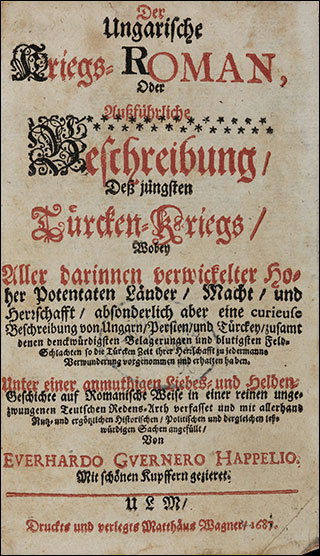 Der
Ungarische
Kriegs-ROMAN,
Oder
Außführliche
Beschreibung/
Deß jüngsten
Türcken-Kriegs/
Wobey
Aller darinnen verwickelter Ho-
her Potentaten Länder/ Macht/ und
Herrschafft/ absonderlich aber eine curieuse
Beschreibung von Ungarn/Persien/und Türckey/zusamt
denen denckwürdigsten Belägerungen und blutigsten Feld-
Schlachten so die Türcken Zeit ihrer Herrschafft zu jedermans
Verwunderung vorgenommen und erhalten haben.
Unter einer anmuthigen Liebes- und Helden-
Geschichte auf Romanische Weise in einer reinen unge-
zwungenen Teutschen Redens-Arth verfasset und mit allerhand
Nutz- und ergötzlichen Historischen/ Politischen und dergleichen leß-
würdigen Sachen angefüllt/
Von
EVERHARDO GVERNERO HAPPELIO.
Mit schönen Kupffern gezieret.
ULM/
Druckts und verlegts Matthäus Wagner/ 1685.